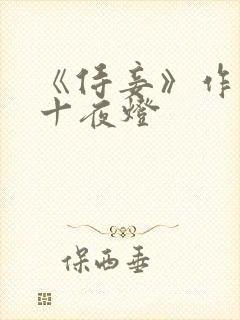 《侍妾》作
十夜燈
保西垂